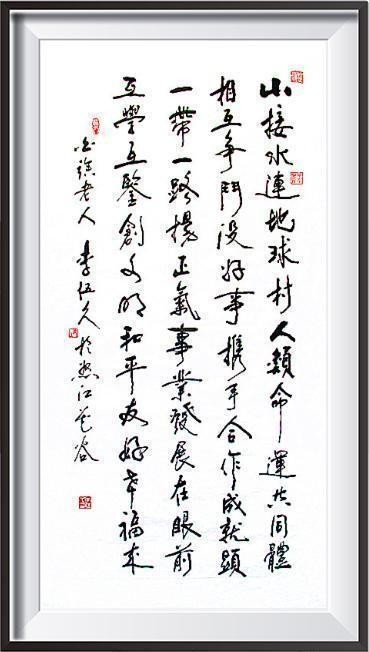 山接水連地球村人類命運共同體
相互争鬥没好事携手合作成就顯
一帶一路揚正氣事業發展在眼前
互學互鑒創文明和平友好幸福來
老人李伍久於江